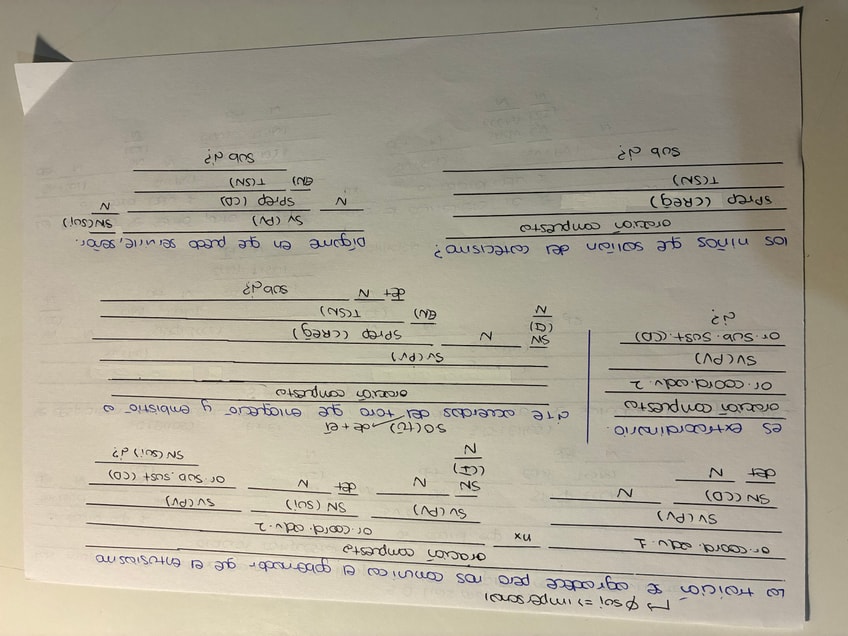 → ∅ suj => impersonal
La traición se agradece pero nos comunica el gobernador que el entusiasmo
oración compuesta
or. coord. adv. 1 nx or. coord. adv. 2
SV (PV) SV (PV) SN (SUJ) SV (PV)
SN (CD) N SN (CI) N det N or. sub. sust (CD)
det N N SN (SUJ) d?
es extraordinario.
oración compuesta
or. coord. adv. 2
SV (PV)
or. sub. sust. (CD)
d?
SO (tú) de + el
¿Te acuerdas del toro que enloqueció y embistió a
oración compuesta
SV (PV)
SN (CI) N SPrep (CReg)
N E(N) T(SN)
det N sub d?
los niños que salían del catecismo?
oración compuesta
SPrep (CReg)
T(SN)
sub d?
Dígame en qué puedo servirle, señor.
SV (PV) SN (SUJ)
N SPrep (CD) N
E(N) T(SN)
sub d?